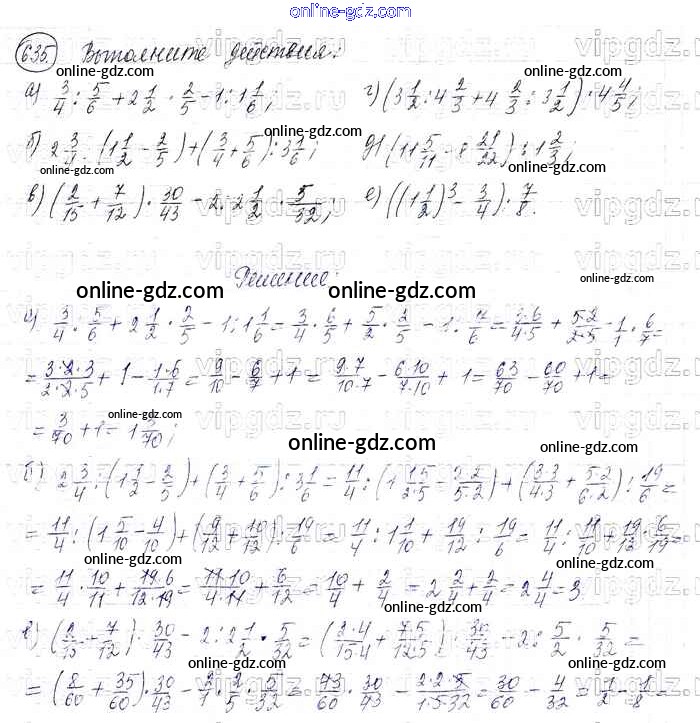 online-gdz.com
635. Выполните действия:
а) 3/4 : 5/6 + 2 1/2 · 2/5 - 1 : 1 1/6; г) (3 1/2 : 4 2/3 + 4 2/3 : 3 1/2) · 4 4/5;
б) 2 3/4 : (1 1/2 - 2/5) + (3/4 + 5/6) : 3 1/6; д) (1 5/11 - 21/22) : 1 2/3;
в) (2/15 + 7/12) · 30/43 - 2 : 2 1/2 · 5/32; е) ((1 1/2)³ - 3/4) · 7/8.
Решение:
а) 3/4 : 5/6 + 2 1/2 · 2/5 - 1 : 1 1/6 = 3/4 · 6/5 + 5/2 · 2/5 - 1 : 7/6 = 3·6/4·5 + 5·2/2·5 - 1/1 · 6/7 =
= 3·2·3/2·2·5 + 1 - 1·6/1·7 = 9/10 - 6/7 + 1 = 9·7/10·7 - 6·10/7·10 + 1 = 63/70 - 60/70 + 1 =
= 3/70 + 1 = 1 3/70;
б) 2 3/4 : (1 1/2 - 2/5) + (3/4 + 5/6) : 3 1/6 = 11/4 : (1 1·5/2·5 - 2·2/5·2) + (3·3/4·3 + 5·2/6·2) : 19/6 =
= 11/4 : (1 5/10 - 4/10) + (9/12 + 10/12) : 19/6 = 11/4 : 1 1/10 + 19/12 : 19/6 = 11/4 : 11/10 + 19/12 · 6/19 =
= 11/4 · 10/11 + 19·6/12·19 = 11·10/4·11 + 6/12 = 10/4 + 2/4 = 2 2/4 + 2/4 = 2 4/4 = 3
в) (2/15 + 7/12) · 30/43 - 2 : 2 1/2 · 5/32 = (2·4/15·4 + 7·5/12·5) · 30/43 - 2 : 5/2 · 5/32 =
= (8/60 + 35/60) · 30/43 - 2/1 · 2/5 · 5/32 = 43/60 · 30/43 - 2·2·5/1·5·32 = 30/60 - 4/32 = 1/2 - 1/8 =